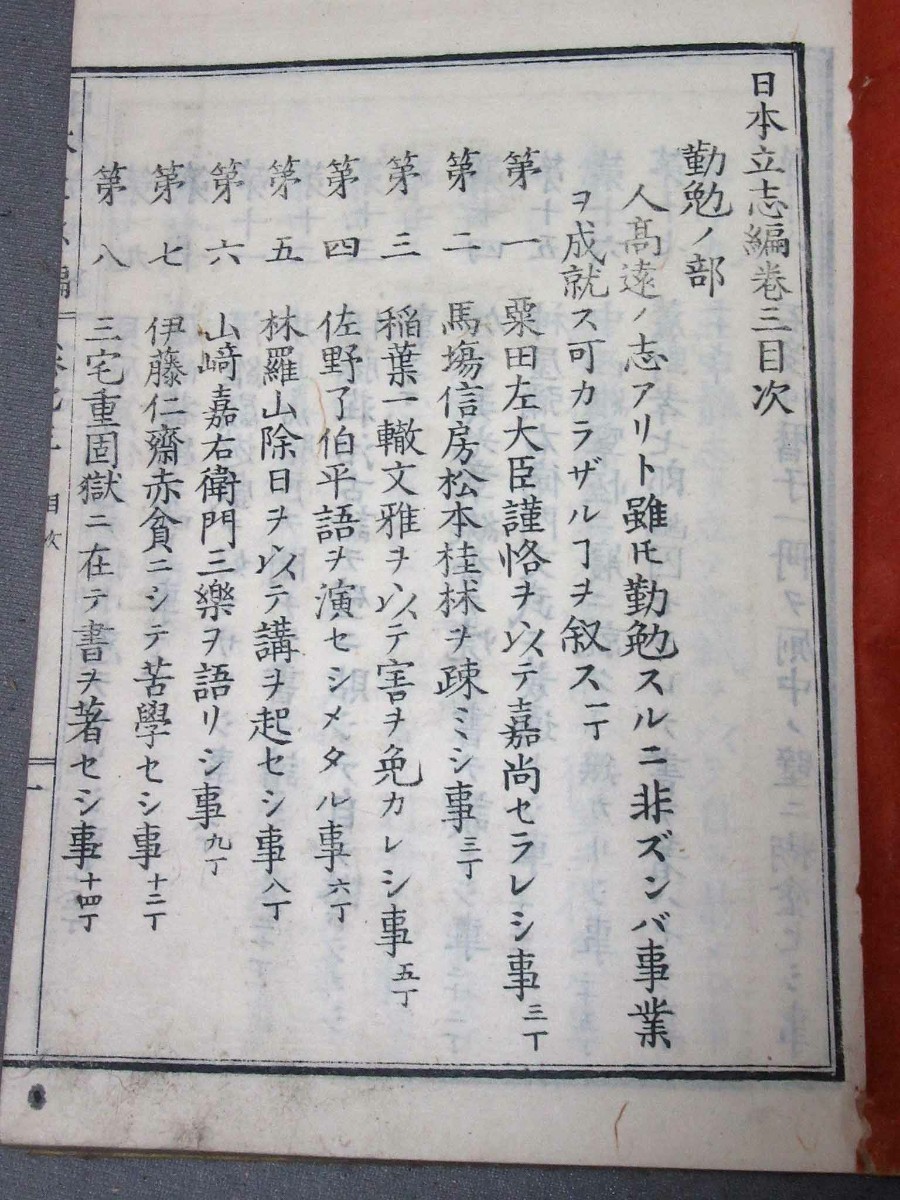 日本立志編卷三目次
勤勉ノ部
人高遠ノ志アリト雖𪜈勤勉スルニ非ズンバ事業
ヲ成就ス可カラザルヿヲ叙ス 一丁
第一 粟田左大臣謹恪ヲ以テ嘉尚セラレシ事 三丁
第二 馬塲信房松本桂林ヲ疎ミシ事 三丁
第三 稲葉一轍文雅ヲ以テ害ヲ免カレシ事 五丁
第四 佐野了伯平語ヲ演セシメタル事 六丁
第五 林羅山除日ヲ以テ講ヲ起セシ事 八丁
第六 山﨑嘉右衛門三樂ヲ語リシ事 九丁
第七 伊藤仁齋赤貧ニシテ苦學セシ事 十二丁
第八 三宅重固獄ニ在テ書ヲ著セシ事 十四丁
目次
一